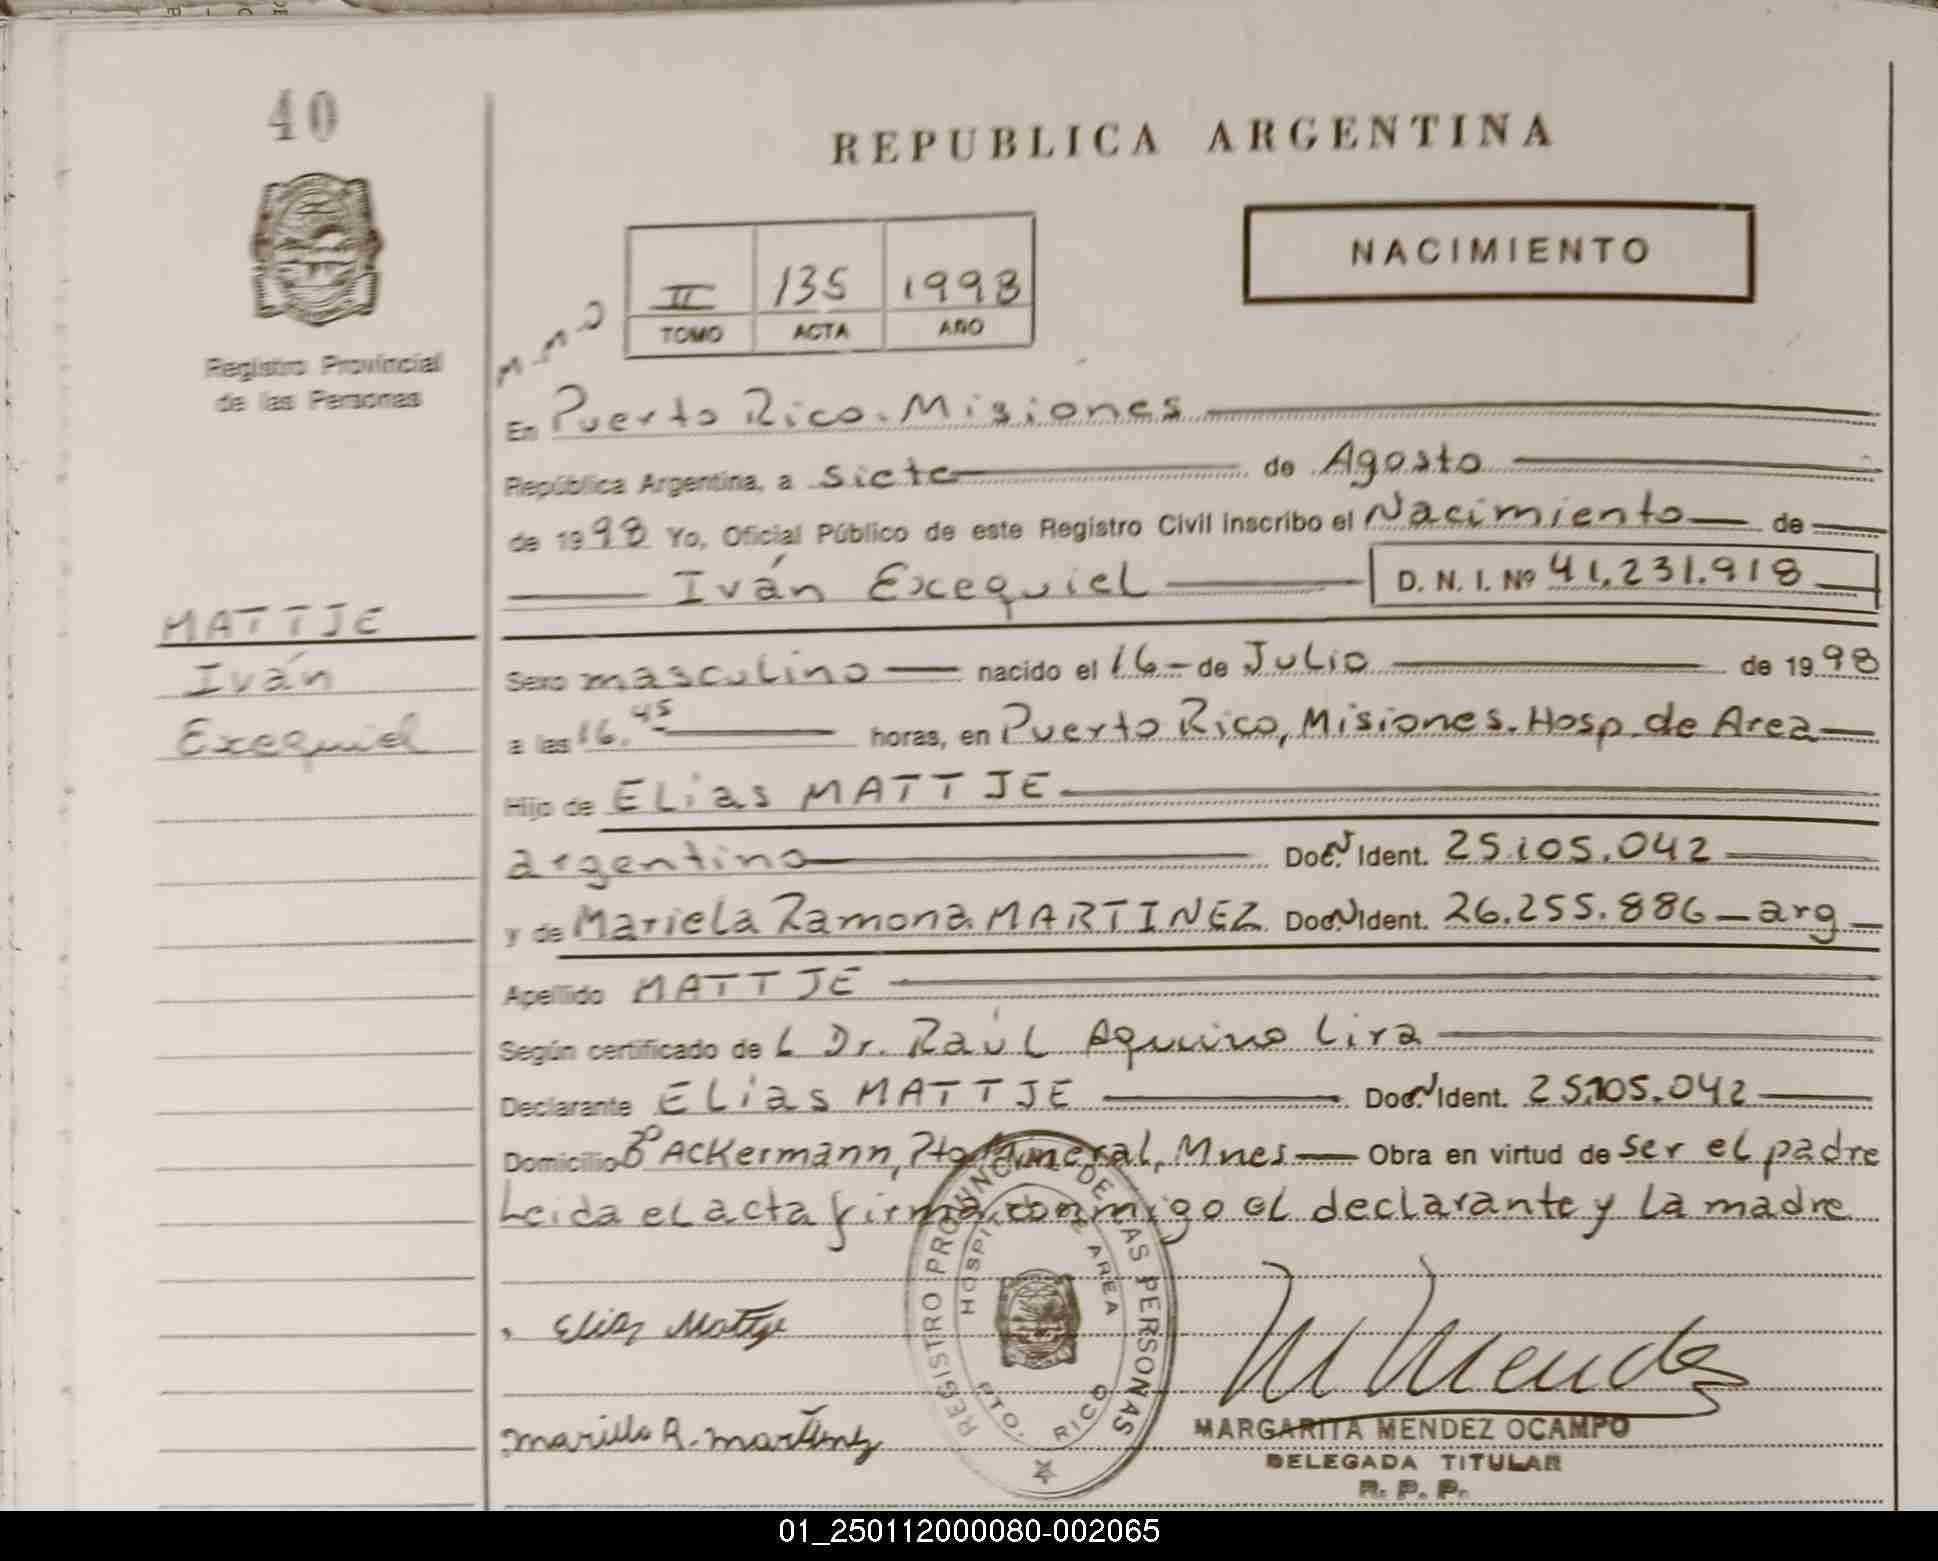 40
REPUBLICA ARGENTINA
NACIMIENTO
II 135 1998
TOMO ACTA AÑO
Registro Provincial
de las Personas
En Puerto Rico. Misiones
República Argentina, a siete de Agosto
de 1998 Yo, Oficial Público de este Registro Civil inscribo el Nacimiento de
Iván Exequiel D. N. I. Nº 41.231.918
MATTJE
Iván
Exequiel
Sexo masculino nacido el 16 de Julio de 1998
a las 16.45 horas, en Puerto Rico, Misiones. Hosp. de Area
Hijo de Elias MATTJE
argentino Doc. N Ident. 25.105.042
y de Mariela Ramona MARTINEZ Doc. N Ident. 26.255.886 - arg
Apellido MATTJE
Según certificado del Dr. Raúl Aquino Lira
Declarante Elias MATTJE Doc. N Ident. 25.105.042
Domicilio Bº Ackermann, Pto Mineral, Mnes Obra en virtud de ser el padre
Leida el acta firma conmigo el declarante y la madre
REGISTRO PROVINCIAL DE LAS PERSONAS
HOSPITAL DE AREA
PTO. RICO
Elias Mattje
M Mendez
MARGARITA MENDEZ OCAMPO
DELEGADA TITULAR
R. P. P.
01_250112000080-002065